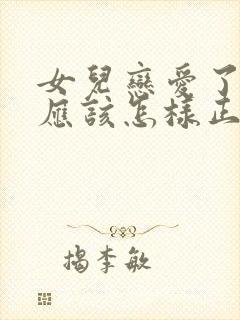 女兒戀愛了
應該怎樣正
揭李敏